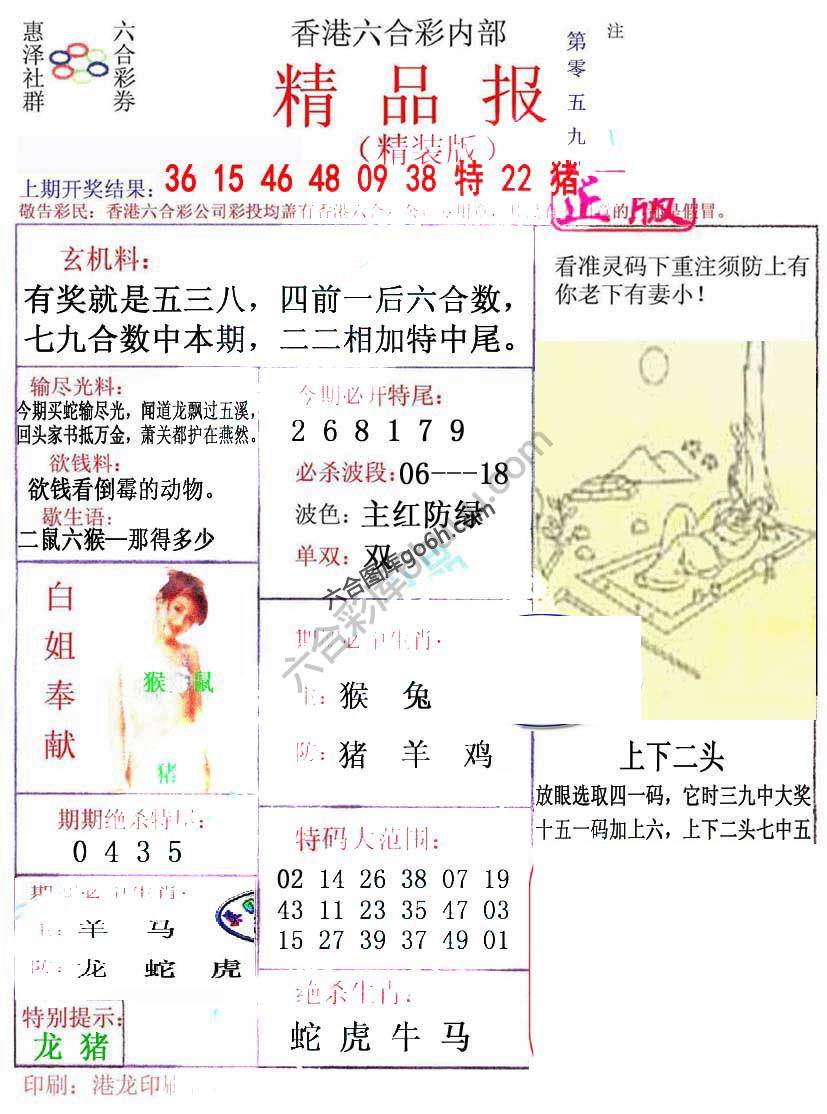 惠泽社群
六合彩券
香港六合彩内部
精品报
(精装版)
第零五九
注
上期开奖结果：36 15 46 48 09 38 特 22 猪
正版
敬告彩民：香港六合彩公司彩投均盖有香港六合
玄机料：
有奖就是五三八，四前一后六合数，
七九合数中本期，二二相加特中尾。
看准灵码下重注须防上有
你老下有妻小！
输尽光料：
今期买蛇输尽光，闻道龙飘过五溪，
回头家书抵万金，萧关都护在燕然。
欲钱料：
欲钱看倒霉的动物。
歇生语：
二鼠六猴—那得多少
今期必开特尾：
2 6 8 1 7 9
必杀波段：06---18
波色：主红防绿
单双：双
六合图库go6h.com
六合彩库
白姐奉献
猴 鼠
猪
期期必中生肖：
主：猴 兔
防：猪 羊 鸡
上下二头
放眼选取四一码，它时三九中大奖
十五一码加上六，上下二头七中五
期期绝杀特尾：
0 4 3 5
特码大范围：
02 14 26 38 07 19
43 11 23 35 47 03
15 27 39 37 49 01
主：羊 马
防：龙 蛇 虎
绝杀生肖：
蛇 虎 牛 马
特别提示：
龙 猪
印刷：港龙印刷